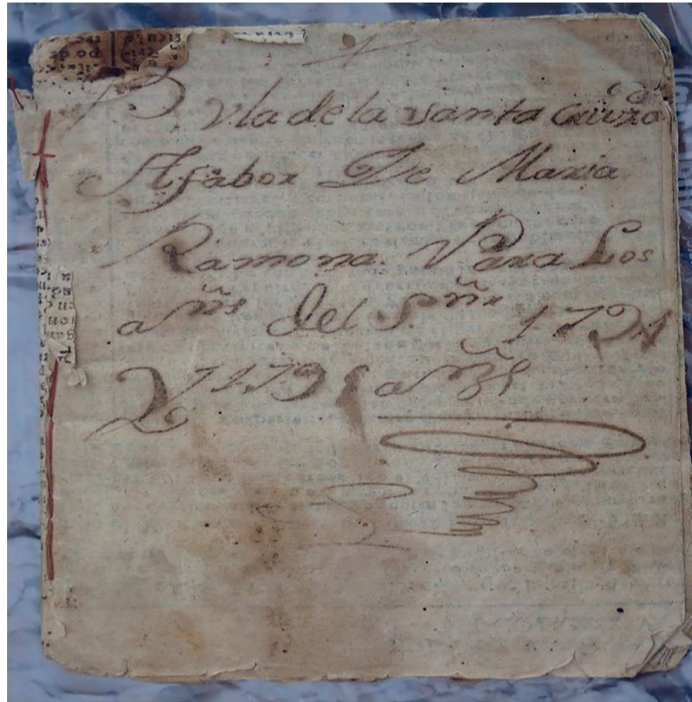 Bula de la santa Cruzada
A fabor De Maria
Ramona. Para Los
años del S.ñor 1794
Y 1795 años